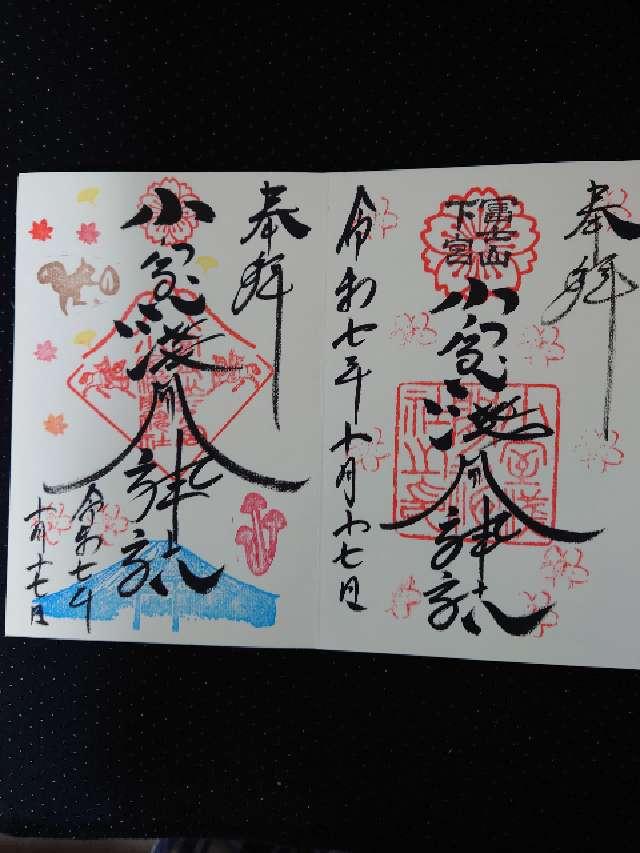 奉拝
冨士山
下宮
小室浅間神社
令和七年十月十七日
奉拝
小室浅間神社
令和七年
十月十七日